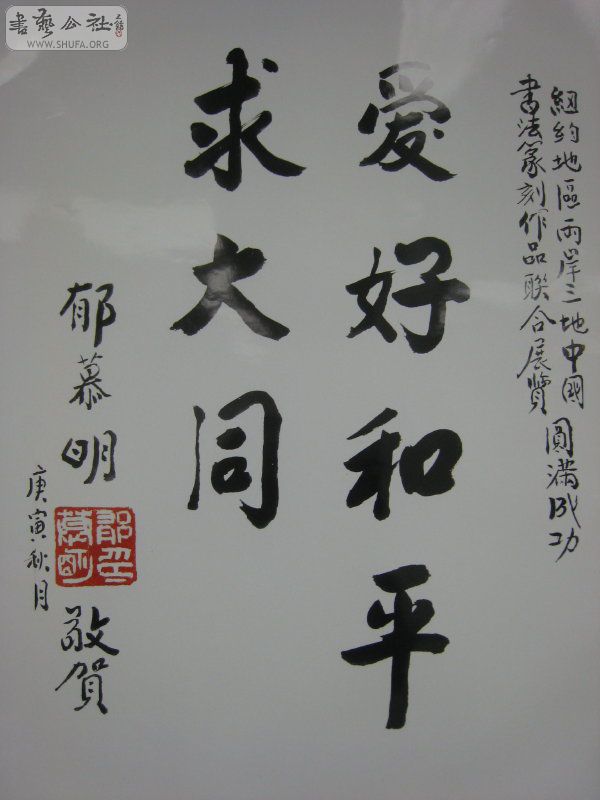 紐約地區兩岸三地中國
書法篆刻作品聯合展覽 圓滿成功
愛好和平
求大同
郁慕明 敬賀
庚寅秋月
郁慕明印
書藝公社
WWW.SHUFA.ORG